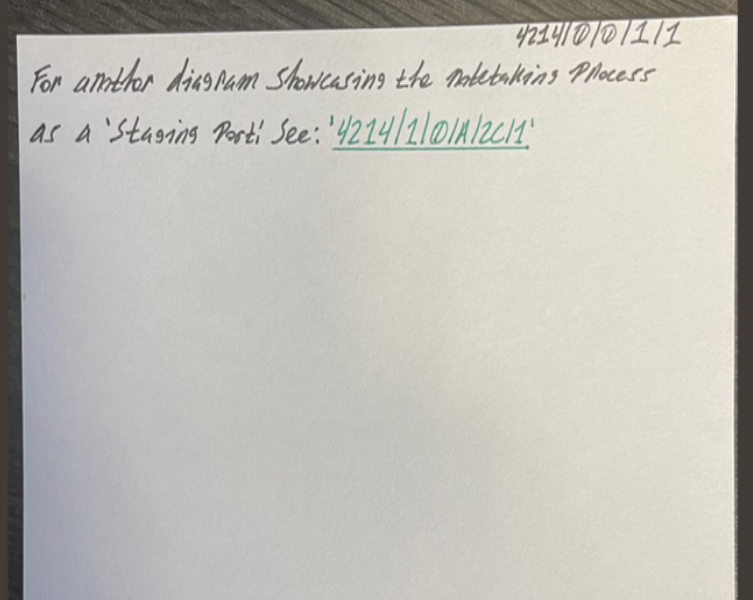 4214/0/0/1/1
For another diagram showcasing the notetaking Process
as a 'Staging Post.' See: '4214/1/0/A/2C/1'